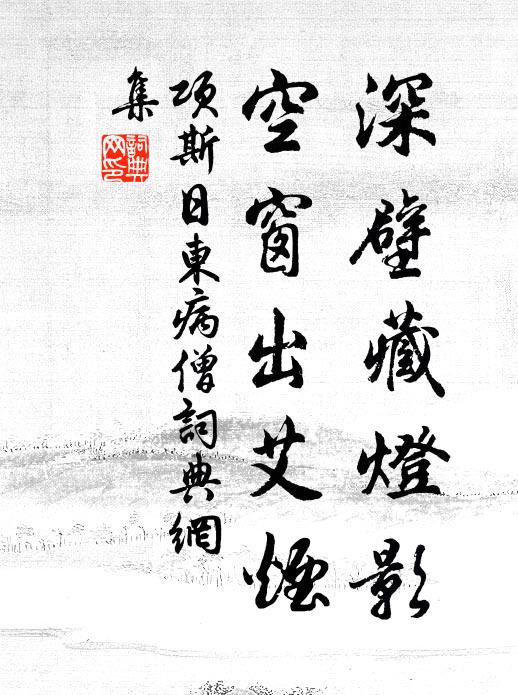 深壁藏燈影
空窗出艾煙
項斯日東病僧詞典網
集
詞典
网印